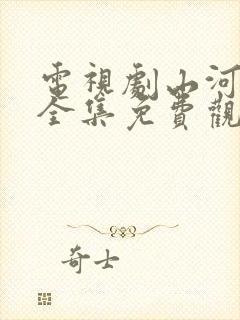 電視劇山河
全集免費觀
奇士